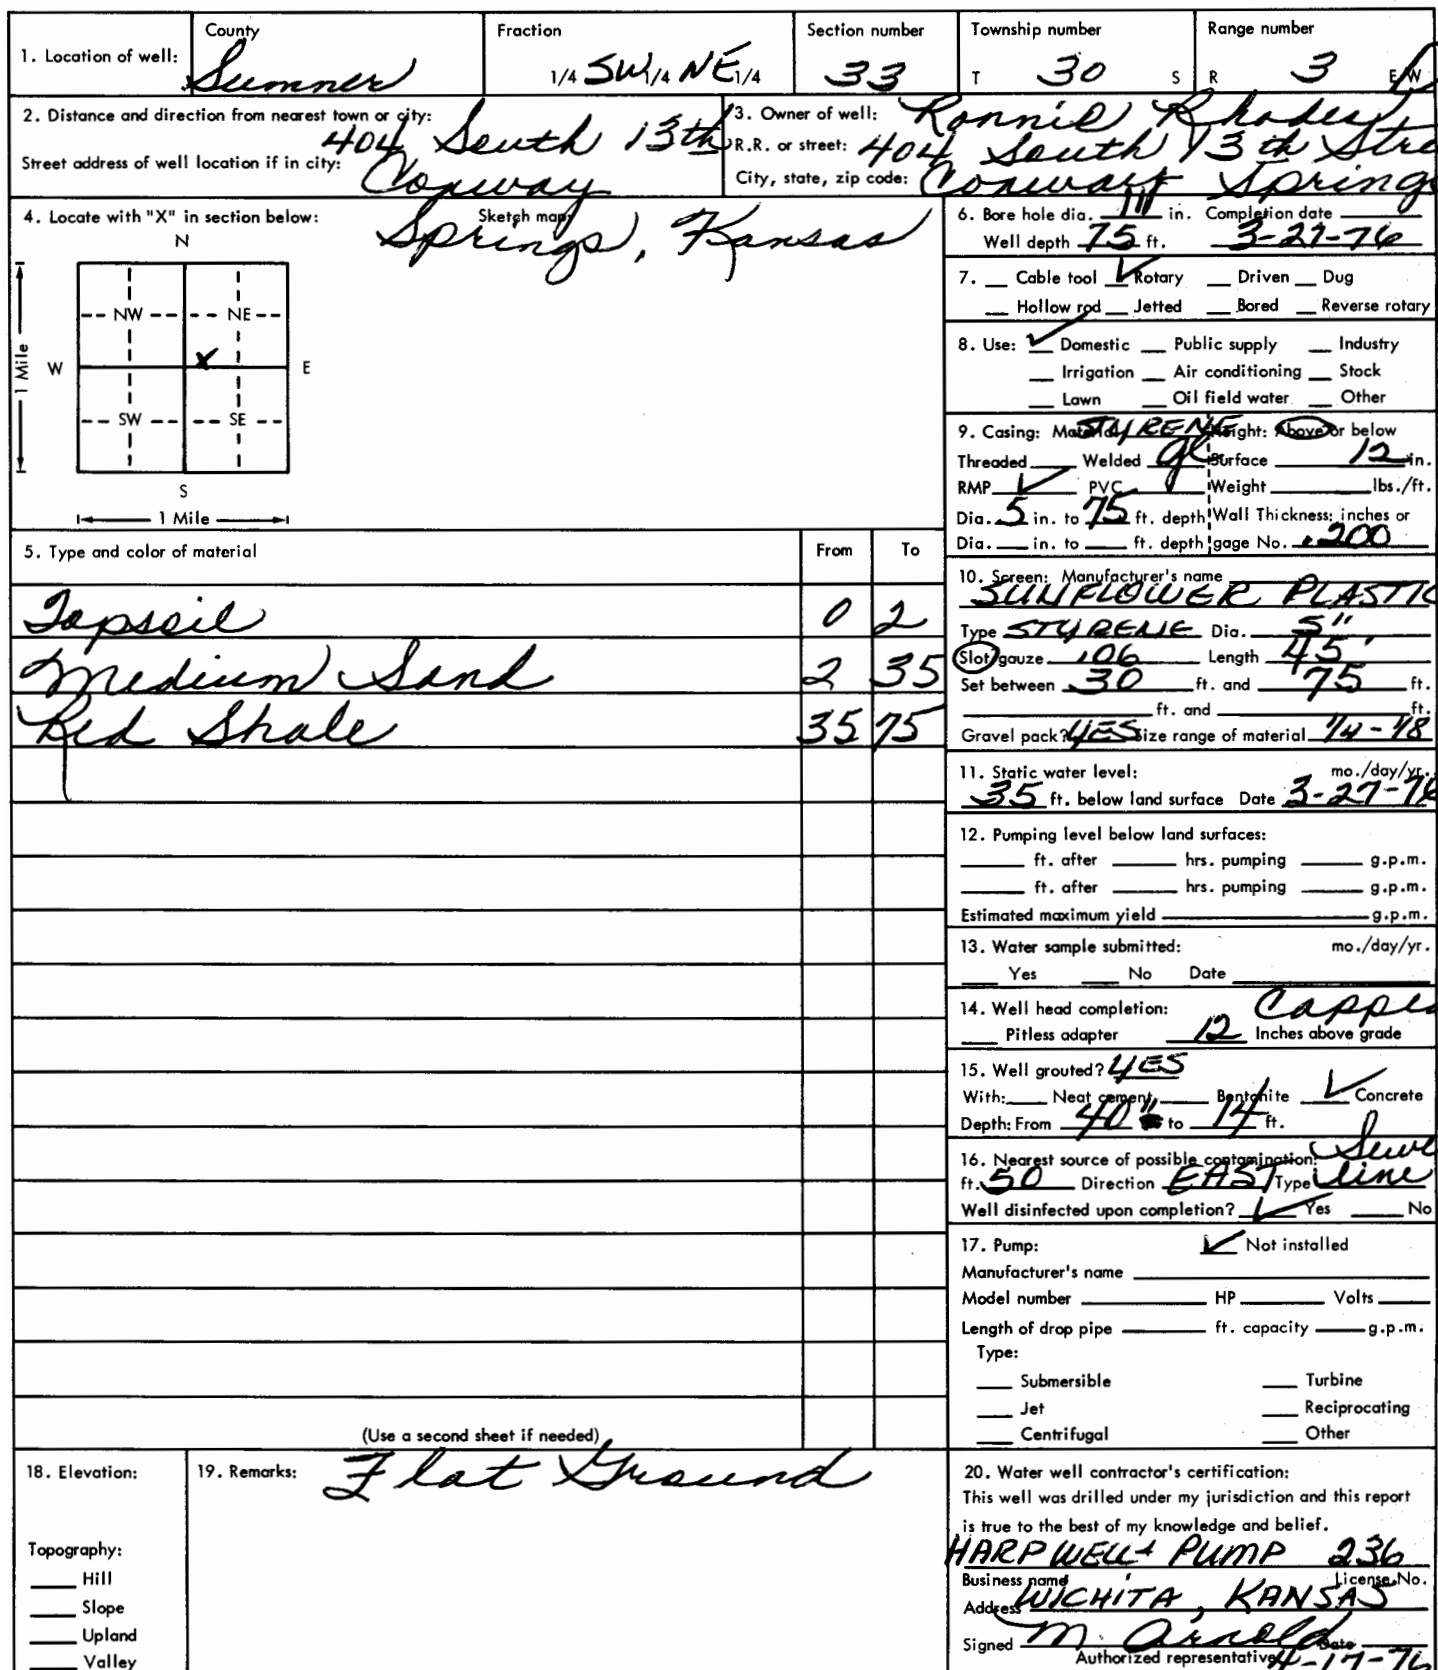 1. Location of well: County Sumner Fraction 1/4 SW 1/4 NE 1/4 Section number 33 Township number T 30 S Range number R 3 E W
2. Distance and direction from nearest town or city: 404 South 13th
Street address of well location if in city: Conway Springs, Kansas
3. Owner of well: Ronnie Rhodes
R.R. or street: 404 South 13th Stre
City, state, zip code: Conway Springs
4. Locate with "X" in section below: Sketch map:
N
NW NE
W X E
SW SE
S
1 Mile
1 Mile
5. Type and color of material From To
Topsoil 0 2
Medium Sand 2 35
Red Shale 35 75
(Use a second sheet if needed)
6. Bore hole dia. in. Completion date
Well depth 75 ft. 3-27-76
7. Cable tool ✓ Rotary Driven Dug
Hollow rod Jetted Bored Reverse rotary
8. Use: ✓ Domestic Public supply Industry
Irrigation Air conditioning Stock
Lawn Oil field water Other
9. Casing: Material STYRENE Height: Above or below
Threaded Welded gl Surface 12 in.
RMP ✓ PVC Weight lbs./ft.
Dia. 5 in. to 75 ft. depth Wall Thickness: inches or
Dia. in. to ft. depth gage No. .200
10. Screen: Manufacturer's name
SUNFLOWER PLASTIC
Type STYRENE Dia. 5"
Slot/gauze .06 Length 45'
Set between 30 ft. and 75 ft.
ft. and ft.
Gravel pack? YES Size range of material 1/4 - 1/8
11. Static water level: mo./day/yr.
35 ft. below land surface Date 3-27-76
12. Pumping level below land surfaces:
ft. after hrs. pumping g.p.m.
ft. after hrs. pumping g.p.m.
Estimated maximum yield g.p.m.
13. Water sample submitted: mo./day/yr.
Yes No Date
14. Well head completion: Capped
Pitless adapter 12 Inches above grade
15. Well grouted? YES
With: Neat cement Bentonite ✓ Concrete
Depth: From 40" to 14 ft.
16. Nearest source of possible contamination: Sewe
ft. 50 Direction EAST Type line
Well disinfected upon completion? ✓ Yes No
17. Pump: ✓ Not installed
Manufacturer's name
Model number HP Volts
Length of drop pipe ft. capacity g.p.m.
Type:
Submersible Turbine
Jet Reciprocating
Centrifugal Other
18. Elevation:
Topography:
Hill
Slope
Upland
Valley
19. Remarks: Flat Ground
20. Water well contractor's certification:
This well was drilled under my jurisdiction and this report
is true to the best of my knowledge and belief.
HARP WELL & PUMP 236
Business name License No.
Address WICHITA, KANSAS
Signed M. Arnold Date
Authorized representative 4-17-76